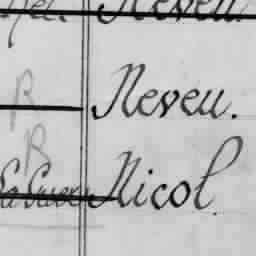 Neveu.
R Neveu.
R
Nicol